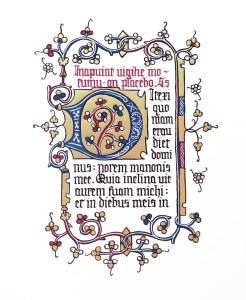 Inapiunt vigihe mo-
tumu · an placebo. Ss
Dilexi
quo
niam
exau
diet
domi
nus: vocem orationis
mee. Quia inclina vit
aurem suam michi:
et in diebus meis in